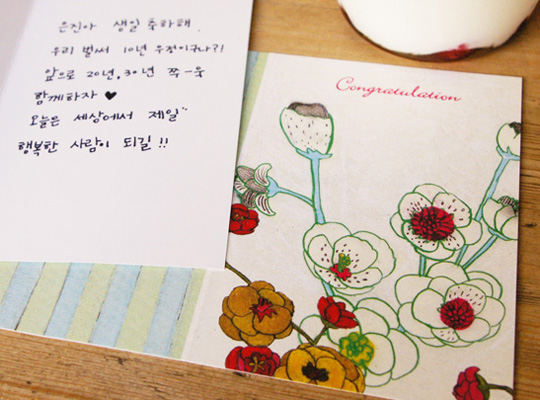 은진아 생일 축하해.
우리 벌써 10년 우정이구나?!
앞으로 20년, 30년 쭉-욱
함께하자 ♥
오늘은 세상에서 제일
행복한 사람이 되길!!
Congratulation